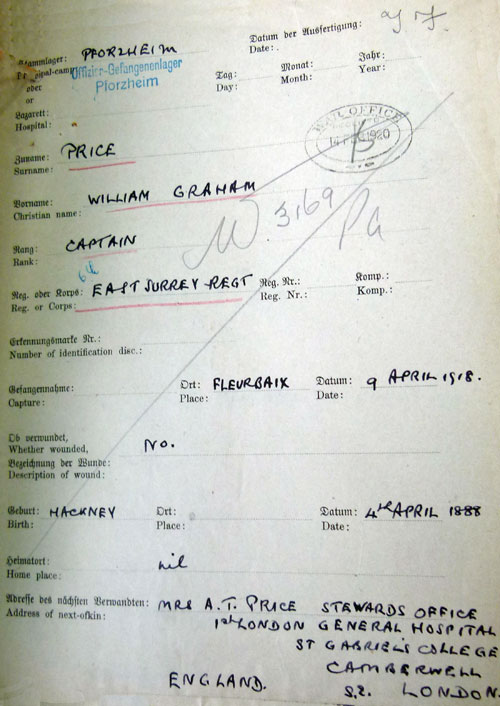 Stammlager: PFORZHEIM
Datum der Ausfertigung:
Date:
Offizier-Gefangenenlager
Pforzheim
oder
or
Tag: Monat: Jahr:
Day: Month: Year:
Lazarett:
Hospital:
WAR OFFICE
1920
Zuname: PRICE
Surname:
Vorname: WILLIAM GRAHAM
Christian name:
3,169
Rang: CAPTAIN
Rank:
6th
Reg. oder Korps: EAST SURREY REGT Reg. Nr.: Komp.:
Reg. or Corps: Reg. Nr.: Komp.:
Erkennungsmarke Nr.:
Number of identification disc.:
Gefangennahme: Ort: FLEURBAIX Datum: 9 APRIL 1918.
Capture: Place: Date:
Ob verwundet, No.
Whether wounded,
Bezeichnung der Wunde:
Description of wound:
Geburt: HACKNEY Ort: Datum: 4TH APRIL 1888
Birth: Place: Date:
Heimatort: nil
Home place:
Adresse des nächsten Verwandten: MRS A.T. PRICE STEWARDS OFFICE
Address of next-ofkin: 1st LONDON GENERAL HOSPITAL
ST GABRIEL'S COLLEGE
CAMBERWELL
ENGLAND. S.E. LONDON.